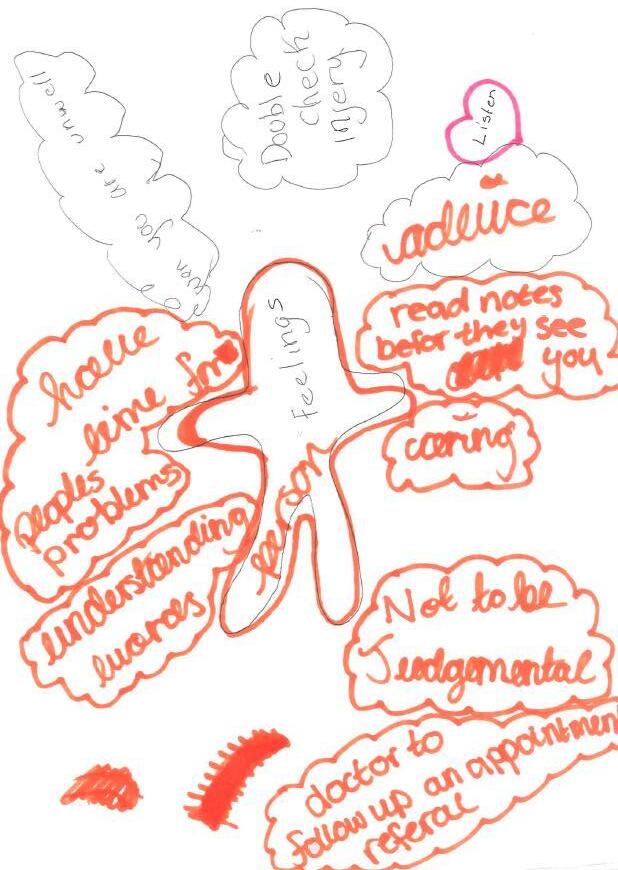 when you are unwell
Double
check
injery
Listen
advice
read notes
befor they see
you
have
time for
peoples
problems
Feelings
person
caring
understanding
words
Not to be
Judgemental
doctor to
follow up an appointment
referal